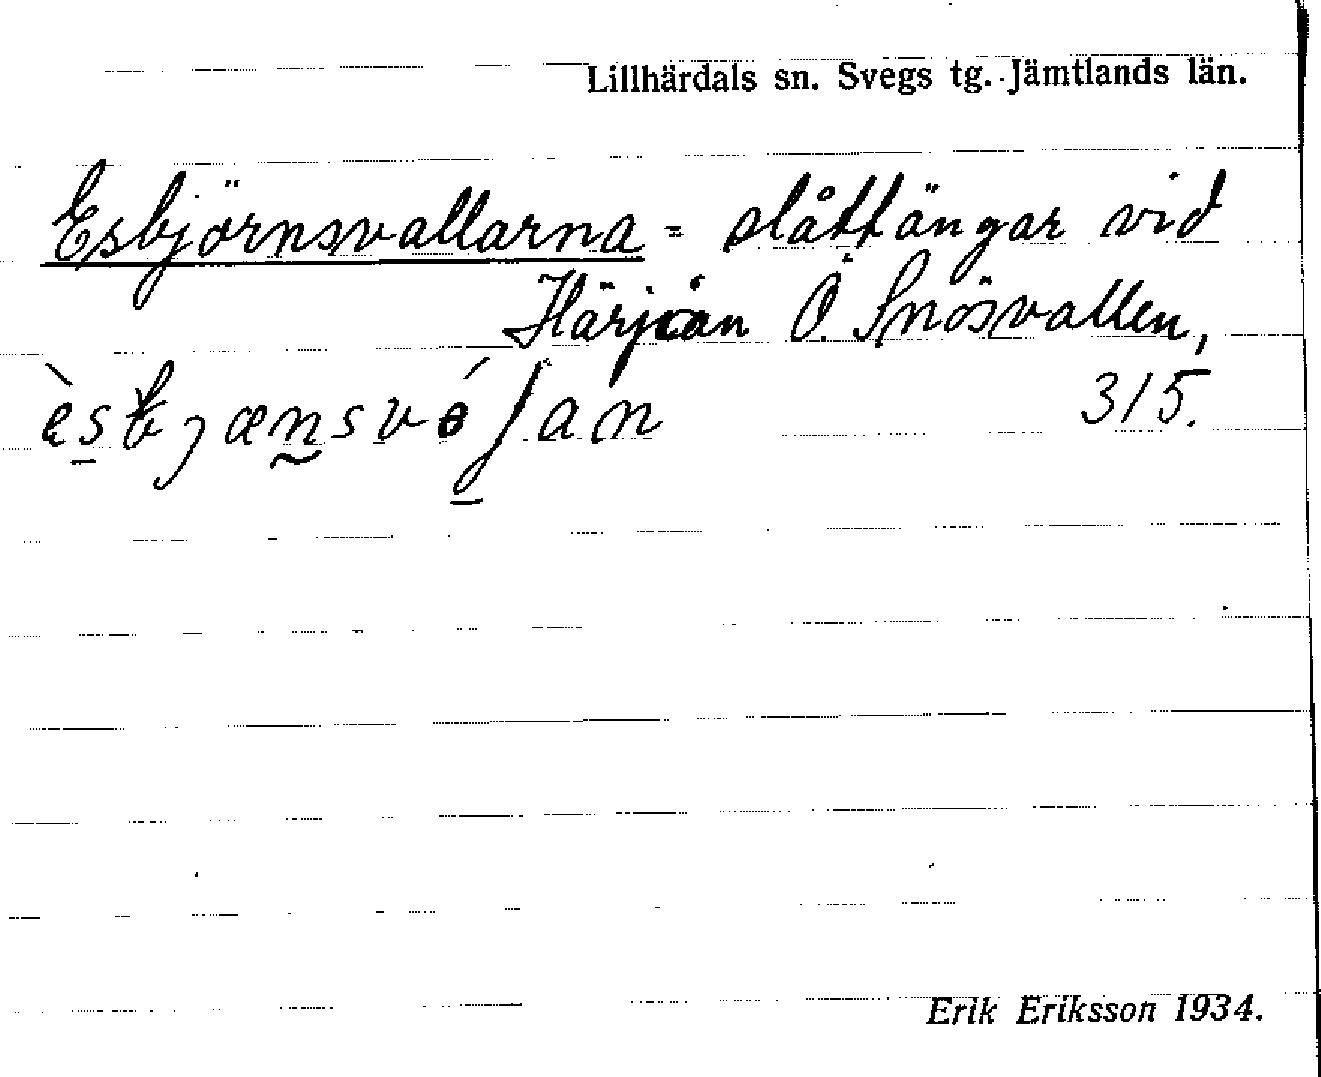 Lillhärdals sn. Svegs tg. Jämtlands län.
Esbjörnsvallarna = slåttängar vid
Härjån Ö. Snösvallen,
315.
Erik Eriksson 1934.